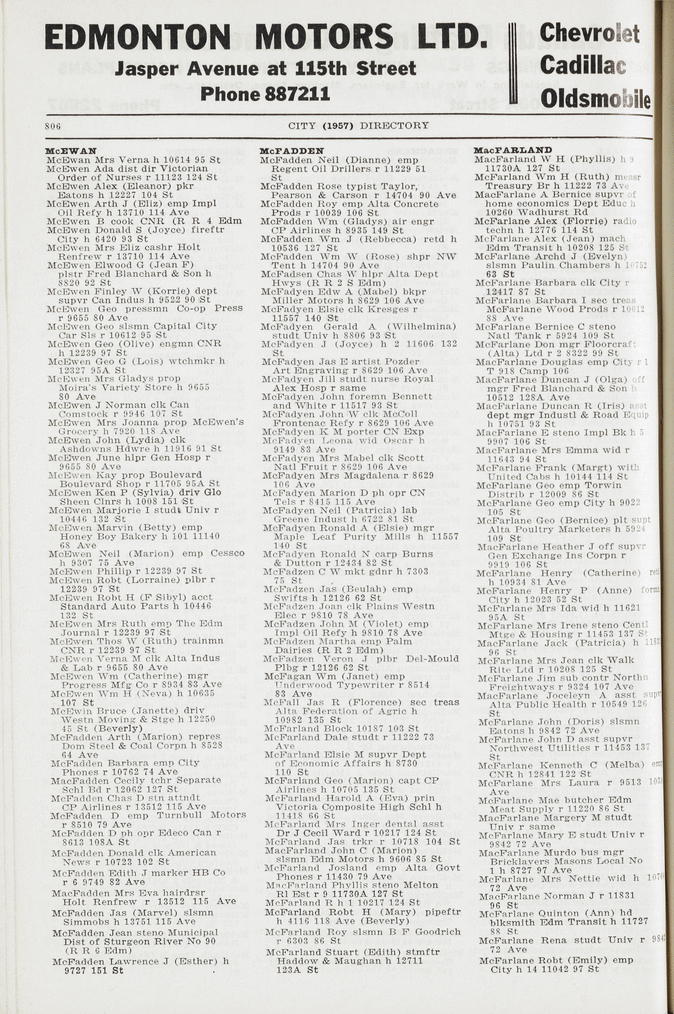 EDMONTON MOTORS LTD.
Jasper Avenue at 115th Street
Phone 887211
Chevrolet
Cadillac
Oldsmobile
806
CITY (1957) DIRECTORY
McEWAN
McEwan Mrs Verna h 10614 95 St
McEwen Ada dist dir Victorian
Order of Nurses r 11123 124 St
McEwen Alex (Eleanor) pkr
Eatons h 12227 104 St
McEwen Arth J (Eliz) emp Impl
Oil Refy h 13710 114 Ave
McEwen B cook CNR (R R 4 Edm
McEwen Donald S (Joyce) fireftr
City h 6420 93 St
McEwen Mrs Eliz cashr Holt
Renfrew r 13710 114 Ave
McEwen Elwood G (Jean F)
plstr Fred Blanchard & Son h
8820 92 St
McEwen Finley W (Korrie) dept
supvr Can Indus h 9522 90 St
McEwen Geo pressmn Co-op Press
r 9655 80 Ave
McEwen Geo slsmn Capital City
Car Sls r 10612 95 St
McEwen Geo (Olive) engmn CNR
h 12239 97 St
McEwen Geo G (Lois) wtchmkr h
12327 95A St
McEwen Mrs Gladys prop
Moira's Variety Store h 9655
80 Ave
McEwen J Norman clk Can
Comstock r 9946 107 St
McEwen Mrs Joanna prop McEwen's
Grocery h 7920 118 Ave
McEwen John (Lydia) clk
Ashdowns Hdwre h 11916 91 St
McEwen June hlpr Gen Hosp r
9655 80 Ave
McEwen Kay prop Boulevard
Boulevard Shop r 11705 95A St
McEwen Ken P (Sylvia) driv Glo
Sheen Clnrs h 1008 151 St
McEwen Marjorie I studt Univ r
10446 132 St
McEwen Marvin (Betty) emp
Honey Boy Bakery h 101 11140
68 Ave
McEwen Neil (Marion) emp Cessco
h 9307 75 Ave
McEwen Phillip r 12239 97 St
McEwen Robt (Lorraine) plbr r
12239 97 St
McEwen Robt H (F Sibyl) acct
Standard Auto Parts h 10446
132 St
McEwen Mrs Ruth emp The Edm
Journal r 12239 97 St
McEwen Thos W (Ruth) trainmn
CNR r 12239 97 St
McEwen Verna M clk Alta Indus
& Lab r 9655 80 Ave
McEwen Wm (Catherine) mgr
Progress Mfg Co r 8934 83 Ave
McEwen Wm H (Neva) h 10635
107 St
McEwin Bruce (Janette) driv
Westn Moving & Stge h 12250
45 St (Beverly)
McFadden Arth (Marion) repres
Dom Steel & Coal Corpn h 8528
64 Ave
McFadden Barbara emp City
Phones r 10762 74 Ave
MacFadden Cecily tchr Separate
Schl Bd r 12062 127 St
McFadden Chas D stn attndt
CP Airlines r 13512 115 Ave
McFadden D emp Turnbull Motors
r 8510 79 Ave
McFadden D ph opr Edeco Can r
8613 108A St
McFadden Donald clk American
News r 10723 102 St
McFadden Edith J marker HB Co
r 6 9749 82 Ave
MacFadden Mrs Eva hairdrsr
Holt Renfrew r 13512 115 Ave
McFadden Jas (Marvel) slsmn
Simmons h 13751 115 Ave
McFadden Jean steno Municipal
Dist of Sturgeon River No 90
(R R 6 Edm)
McFadden Lawrence J (Esther) h
9727 151 St
McFADDEN
McFadden Neil (Dianne) emp
Regent Oil Drillers r 11229 51
St
McFadden Rose typist Taylor,
Pearson & Carson r 14704 90 Ave
McFadden Roy emp Alta Concrete
Prods r 10039 106 St
McFadden Wm (Gladys) air engr
CP Airlines h 8935 149 St
McFadden Wm J (Rebbecca) retd h
10536 127 St
McFadden Wm W (Rose) shpr NW
Tent h 14704 90 Ave
McFadsen Chas W hlpr Alta Dept
Hwys (R R 2 S Edm)
McFadyen Edw A (Mabel) bkpr
Miller Motors h 8629 106 Ave
McFadyen Elsie clk Kresges r
11557 140 St
McFadyen Gerald A (Wilhelmina)
studt Univ h 8806 93 St
McFadyen J (Joyce) h 2 11606 132
St
McFadyen Jas E artist Pozder
Art Engraving r 8629 106 Ave
McFadyen Jill studt nurse Royal
Alex Hosp r same
McFadyen John foremn Bennett
and White r 11517 93 St
McFadyen John W clk McColl
Frontenac Refy r 8629 106 Ave
McFadyen K M porter CN Exp
McFadyen Leona wid Oscar h
9149 83 Ave
McFadyen Mrs Mabel clk Scott
Natl Fruit r 8629 106 Ave
McFadyen Mrs Magdalena r 8629
106 Ave
McFadyen Marion D ph opr CN
Tels r 8415 115 Ave
McFadyen Neil (Patricia) lab
Greene Indust h 6722 81 St
McFadyen Ronald A (Elsie) mgr
Maple Leaf Purity Mills h 11557
140 St
McFadyen Ronald N carp Burns
& Dutton r 12434 82 St
McFadzen C W mkt gdnr h 7303
75 St
McFadzen Jas (Beulah) emp
Swifts h 12126 62 St
McFadzen Joan clk Plains Westn
Elec r 9810 78 Ave
McFadzen John M (Violet) emp
Impl Oil Refy h 9810 78 Ave
McFadzen Martha emp Palm
Dairies (R R 2 Edm)
McFadzen Veron J plbr Del-Mould
Plbg r 12126 62 St
McFagan Wm (Janet) emp
Underwood Typewriter r 8514
83 Ave
McFall Jas R (Florence) sec treas
Alta Federation of Agric h
10982 135 St
McFarland Block 10187 103 St
McFarland Dale studt r 11222 73
Ave
McFarland Elsie M supvr Dept
of Economic Affairs h 8730
110 St
McFarland Geo (Marion) capt CP
Airlines h 10705 135 St
McFarland Harold A (Eva) prin
Victoria Composite High Schl h
11418 66 St
McFarland Mrs Inger dental asst
Dr J Cecil Ward r 10217 124 St
McFarland Jas trkr r 10718 104 St
MacFarland John C (Marion)
slsmn Edm Motors h 9606 85 St
McFarland Josland emp Alta Govt
Phones r 11430 79 Ave
MacFarland Phyllis steno Melton
Rl Est r 9 11730A 127 St
McFarland R h 1 10217 124 St
McFarland Robt H (Mary) pipeftr
h 4116 118 Ave (Beverly)
McFarland Roy slsmn B F Goodrich
r 6303 86 St
McFarland Stuart (Edith) stmftr
Haddow & Maughan h 12711
123A St
MacFARLAND
MacFarland W H (Phyllis) h 9
11730A 127 St
McFarland Wm H (Ruth) messr
Treasury Br h 11222 73 Ave
MacFarlane A Bernice supvr of
home economics Dept Educ h
10260 Wadhurst Rd
McFarlane Alex (Florrie) radio
techn h 12776 114 St
McFarlane Alex (Jean) mach
Edm Transit h 10208 125 St
McFarlane Archd J (Evelyn)
slsmn Paulin Chambers h 10752
63 St
McFarlane Barbara clk City r
12417 87 St
McFarlane Barbara I sec treas
McFarlane Wood Prods r 10612
88 Ave
McFarlane Bernice C steno
Natl Tank r 5924 109 St
McFarlane Don mgr Floorcraft
(Alta) Ltd r 2 8322 99 St
MacFarlane Douglas emp City r 1
T 918 Camp 106
MacFarlane Duncan J (Olga) off
mgr Fred Blanchard & Son h
10512 128A Ave
MacFarlane Duncan R (Iris) asst
dept mgr Industl & Road Equip
h 10751 93 St
MacFarlane E steno Impl Bk h 5
9907 106 St
MacFarlane Mrs Emma wid r
11643 94 St
McFarlane Frank (Margt) with
United Cabs h 10144 114 St
McFarlane Geo emp Torwin
Distrib r 12009 86 St
McFarlane Geo emp City h 9022
105 St
McFarlane Geo (Bernice) plt supt
Alta Poultry Marketers h 5924
109 St
MacFarlane Heather J off supvr
Gen Exchange Ins Corpn r
9919 106 St
McFarlane Henry (Catherine) retd
h 10934 81 Ave
McFarlane Henry P (Anne) formn
City h 12023 52 St
McFarlane Mrs Ida wid h 11621
95A St
McFarlane Mrs Irene steno Centl
Mtge & Housing r 11453 137 St
McFarlane Jack (Patricia) h
96 St
McFarlane Mrs Jean clk Walk
Rite Ltd r 10208 125 St
McFarlane Jim sub contr Northn
Freightways r 9324 107 Ave
MacFarlane Joceleyn A asst supvr
Alta Public Health r 10549 126
St
McFarlane John (Doris) slsmn
Eatons h 9842 72 Ave
McFarlane John D asst supvr
Northwest Utilities r 11453 137
St
McFarlane Kenneth C (Melba) emp
CNR h 12841 122 St
McFarlane Mrs Laura r 9513
Ave
McFarlane Mae butcher Edm
Meat Supply r 11220 86 St
MacFarlane Margery M studt
Univ r same
McFarlane Mary E studt Univ r
9842 72 Ave
MacFarlane Murdo bus mgr
Bricklayers Masons Local No
1 h 8727 97 Ave
McFarlane Mrs Nettie wid h
72 Ave
MacFarlane Norman J r 11831
96 St
McFarlane Quinton (Ann) hd
blksmith Edm Transit h 11727
88 St
McFarlane Rena studt Univ r
72 Ave
McFarlane Robt (Emily) emp
City h 14 11042 97 St